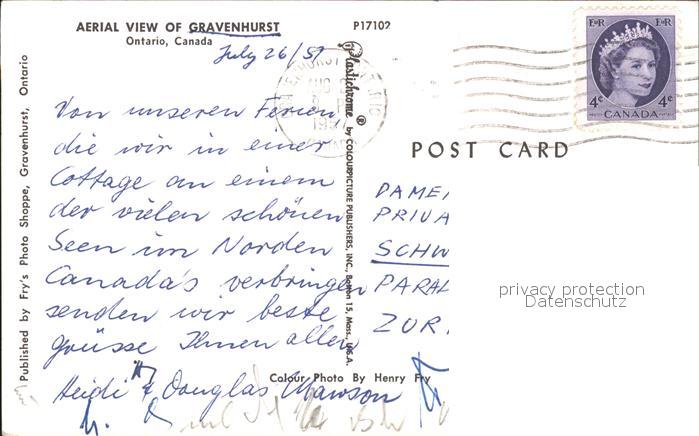 AERIAL VIEW OF GRAVENHURST
Ontario, Canada
P17102
July 26/57
Von unseren Ferien,
die wir in einer
Cottage an einem
der vielen schönen
Seen im Norden
Canada's verbringen
senden wir beste
grüsse Ihnen allen
Heidi & Douglas Mawson
Colour Photo By Henry Fry
Published by Fry's Photo Shoppe, Gravenhurst, Ontario
Plastichrome ® by COLOURPICTURE PUBLISHERS, INC., Boston 15, Mass. U.S.A.
E II R E II R
4c 4c
CANADA
POST CARD
DAME
PRIVA
SCHW
PARA
ZUR
privacy protection
Datenschutz